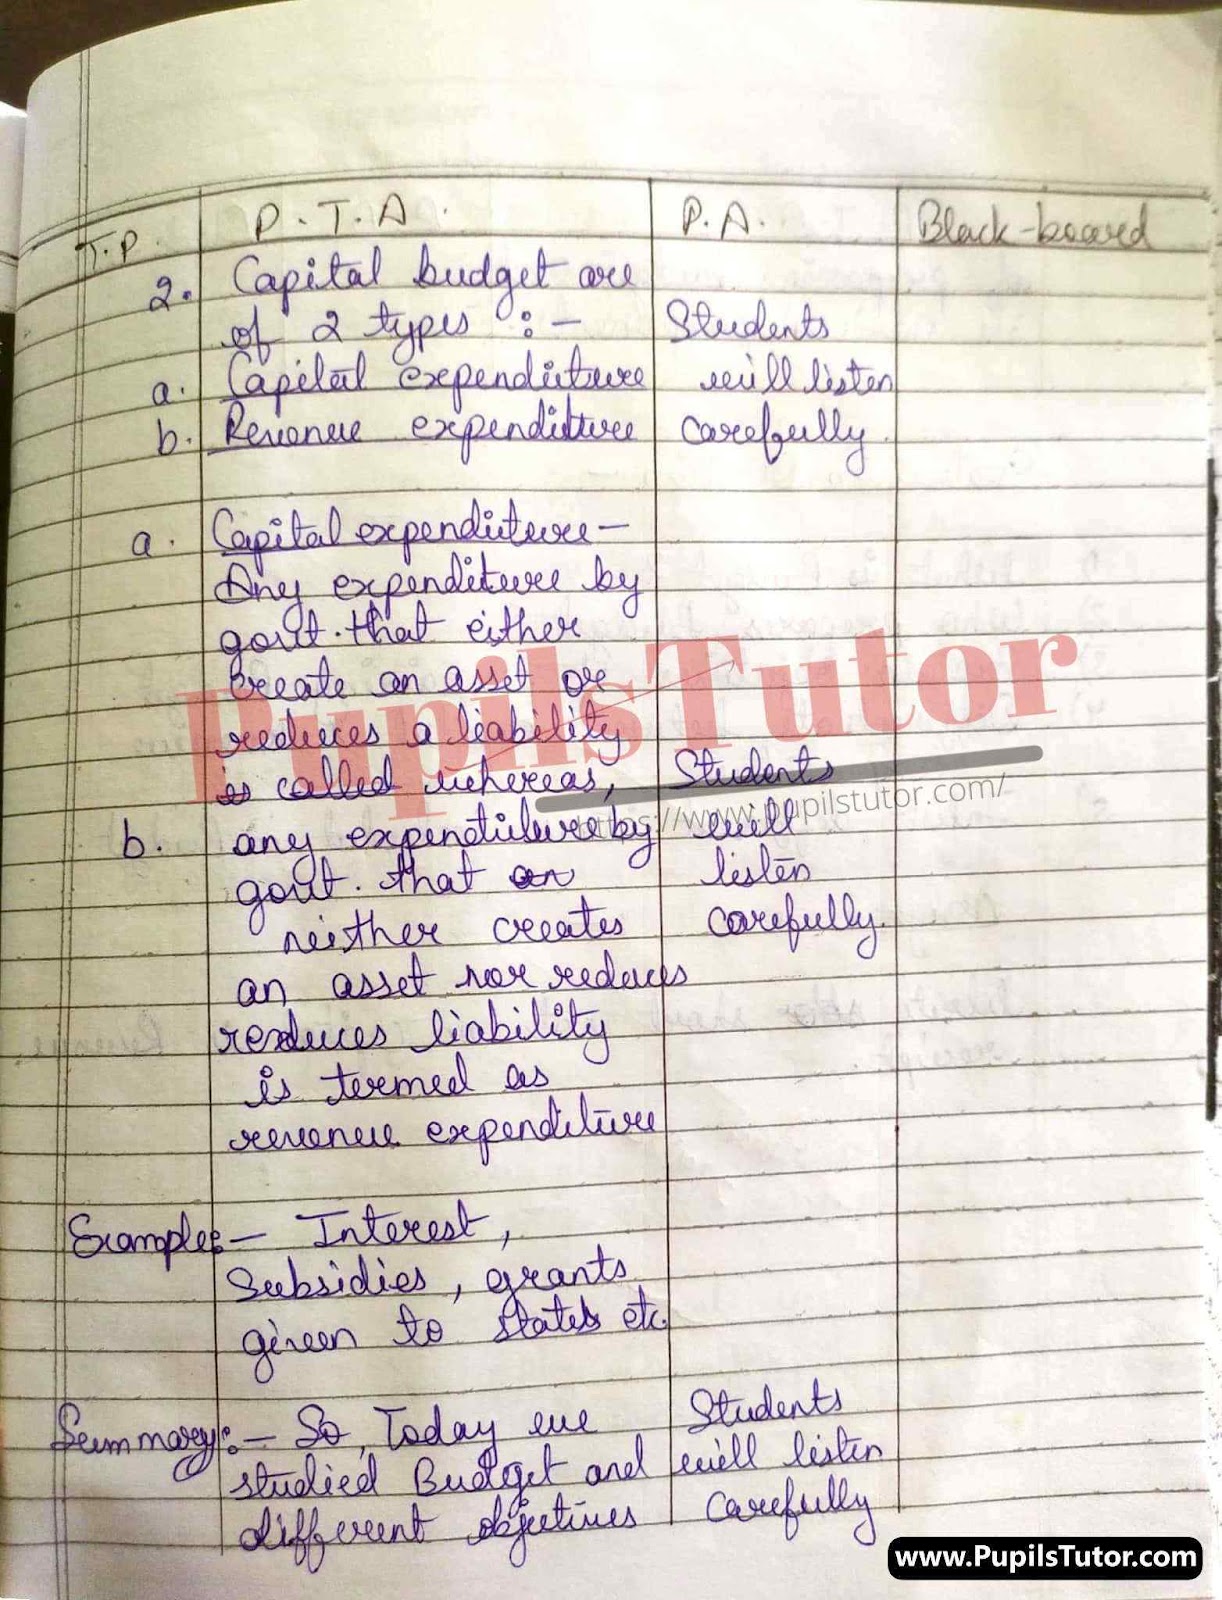 T.P. P.T.A. P.A. Black-board
2. Capital budget are
of 2 types :- Students
a. Capital expenditure will listen
b. Revenue expenditure carefully.
a. Capital expenditure -
Any expenditure by
govt. that either
create an asset or
reduces a liability
is called whereas, Students
b. any expenditure by will
govt. that listen
neither creates carefully.
an asset nor reduces
reduces liability
is termed as
revenue expenditure
Examples :- Interest,
Subsidies, grants
given to states etc.
Summary :- So, Today we Students
studied Budget and will listen
different objectives carefully
PupilsTutor
https://www.pupilstutor.com/
www.PupilsTutor.com